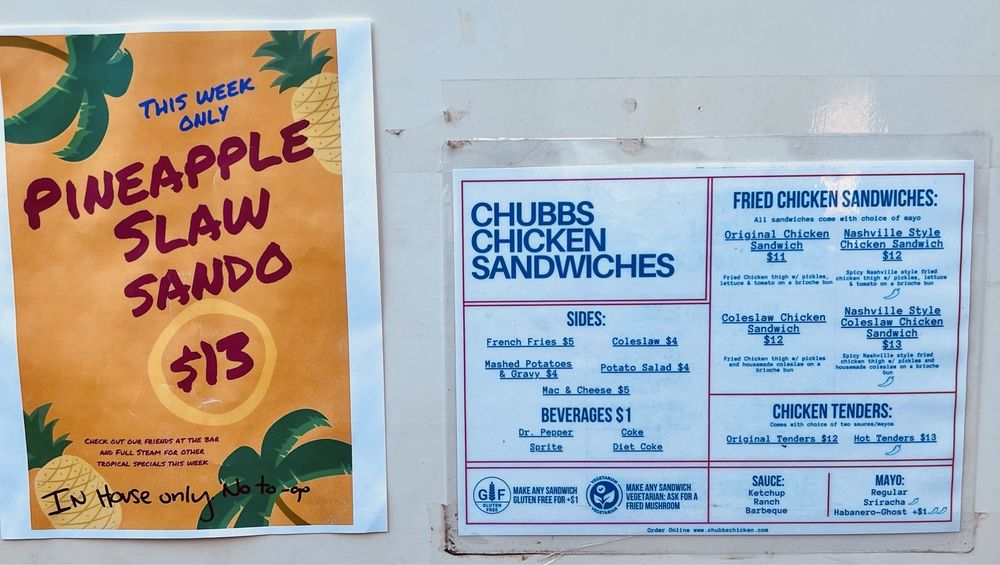 THIS WEEK
ONLY
PINEAPPLE
SLAW
SANDO
$13
CHECK OUT OUR FRIENDS AT THE BAR
AND FULL STEAM FOR OTHER
TROPICAL SPECIALS THIS WEEK
IN House only No to-go
CHUBBS
CHICKEN
SANDWICHES
SIDES:
French Fries $5
Coleslaw $4
Mashed Potatoes
& Gravy $4
Potato Salad $4
Mac & Cheese $5
BEVERAGES $1
Dr. Pepper
Coke
Sprite
Diet Coke
GF
GLUTEN
FREE
MAKE ANY SANDWICH
GLUTEN FREE FOR +$1
VEGETARIAN
VEGETARIAN
MAKE ANY SANDWICH
VEGETARIAN: ASK FOR A
FRIED MUSHROOM
FRIED CHICKEN SANDWICHES:
All sandwiches come with choice of mayo
Original Chicken
Sandwich
$11
Fried Chicken thigh w/ pickles,
lettuce & tomato on a brioche bun
Nashville Style
Chicken Sandwich
$12
Spicy Nashville style fried
chicken thigh w/ pickles, lettuce
& tomato on a brioche bun
Coleslaw Chicken
Sandwich
$12
Fried Chicken thigh w/ pickles
and housemade coleslaw on a
brioche bun
Nashville Style
Coleslaw Chicken
Sandwich
$13
Spicy Nashville style fried
chicken thigh w/ pickles and
housemade coleslaw on a brioche
bun
CHICKEN TENDERS:
Comes with choice of two sauces/mayos
Original Tenders $12
Hot Tenders $13
SAUCE:
Ketchup
Ranch
Barbeque
MAYO:
Regular
Sriracha
Habanero-Ghost +$1
Order Online www.chubbschicken.com